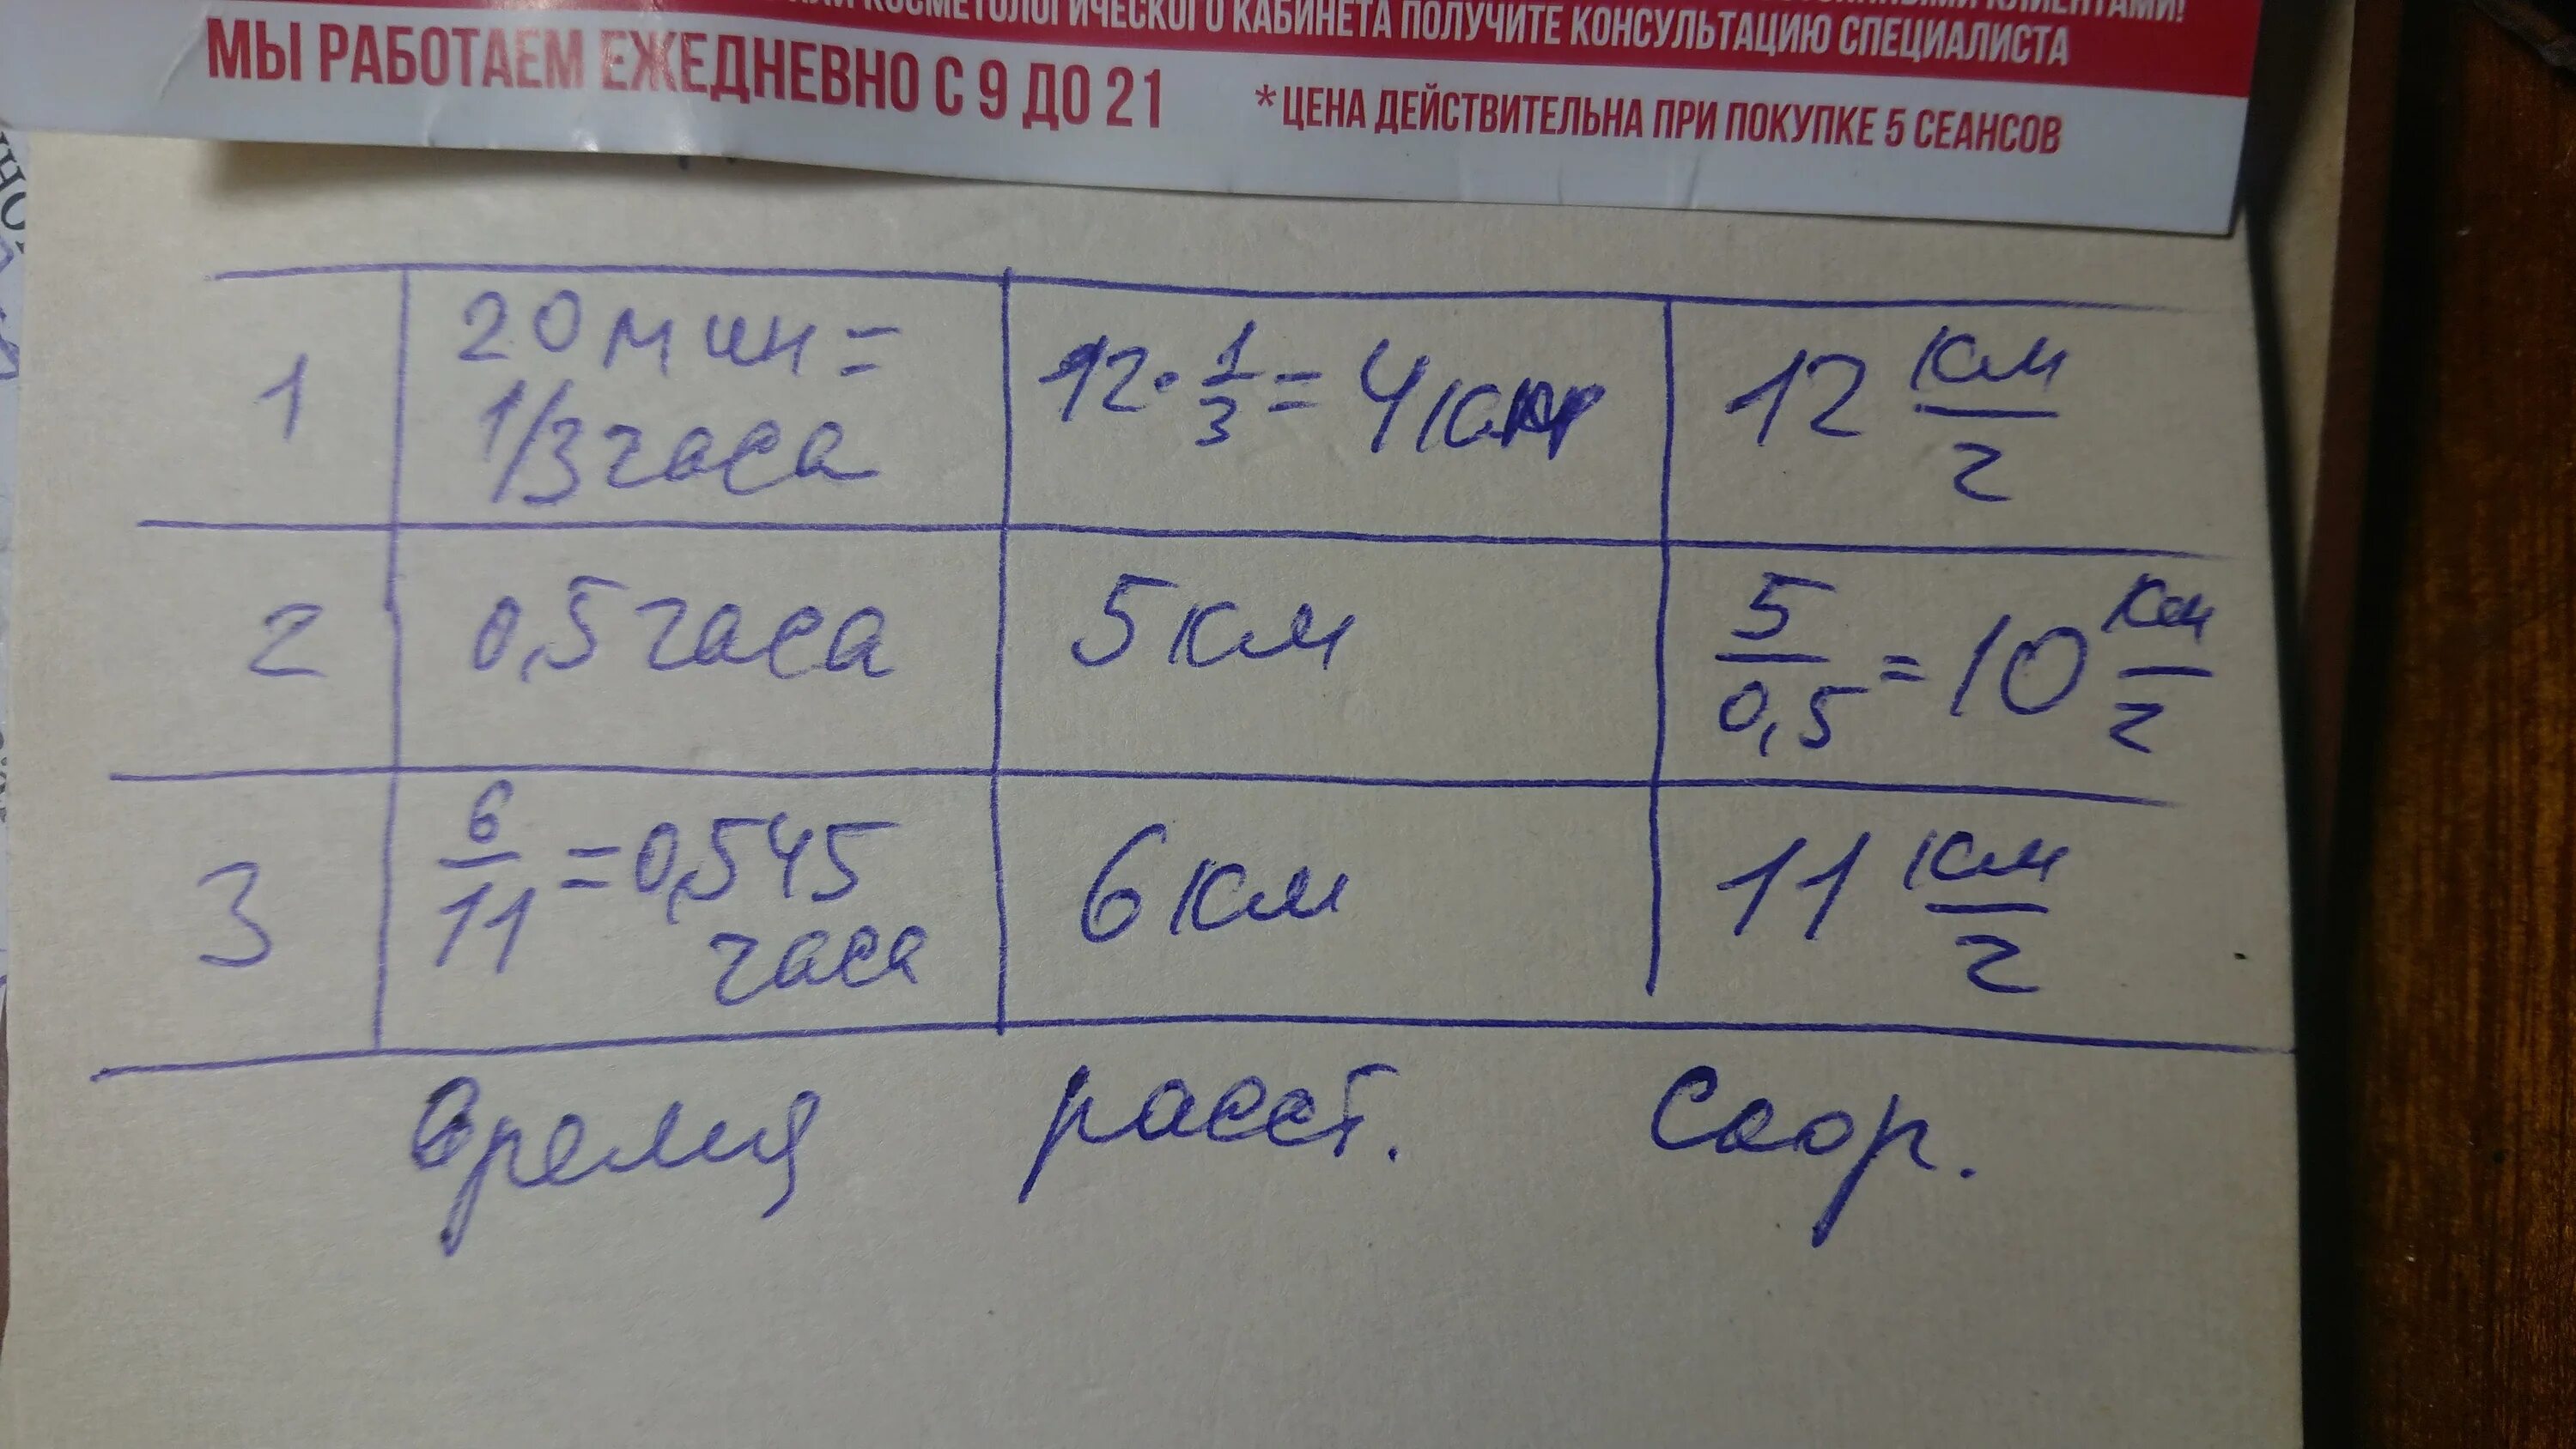 КОСМЕТОЛОГИЧЕСКОГО КАБИНЕТА ПОЛУЧИТЕ КОНСУЛЬТАЦИЮ СПЕЦИАЛИСТА
МЫ РАБОТАЕМ ЕЖЕДНЕВНО С 9 ДО 21
*ЦЕНА ДЕЙСТВИТЕЛЬНА ПРИ ПОКУПКЕ 5 СЕАНСОВ
1 20 мин = 1/3 часа 12 · 1/3 = 4 км 12 км/г
2 0,5 часа 5 км 5/0,5 = 10 км/г
3 6/11 = 0,545 часа 6 км 11 км/г
время расст. скор.